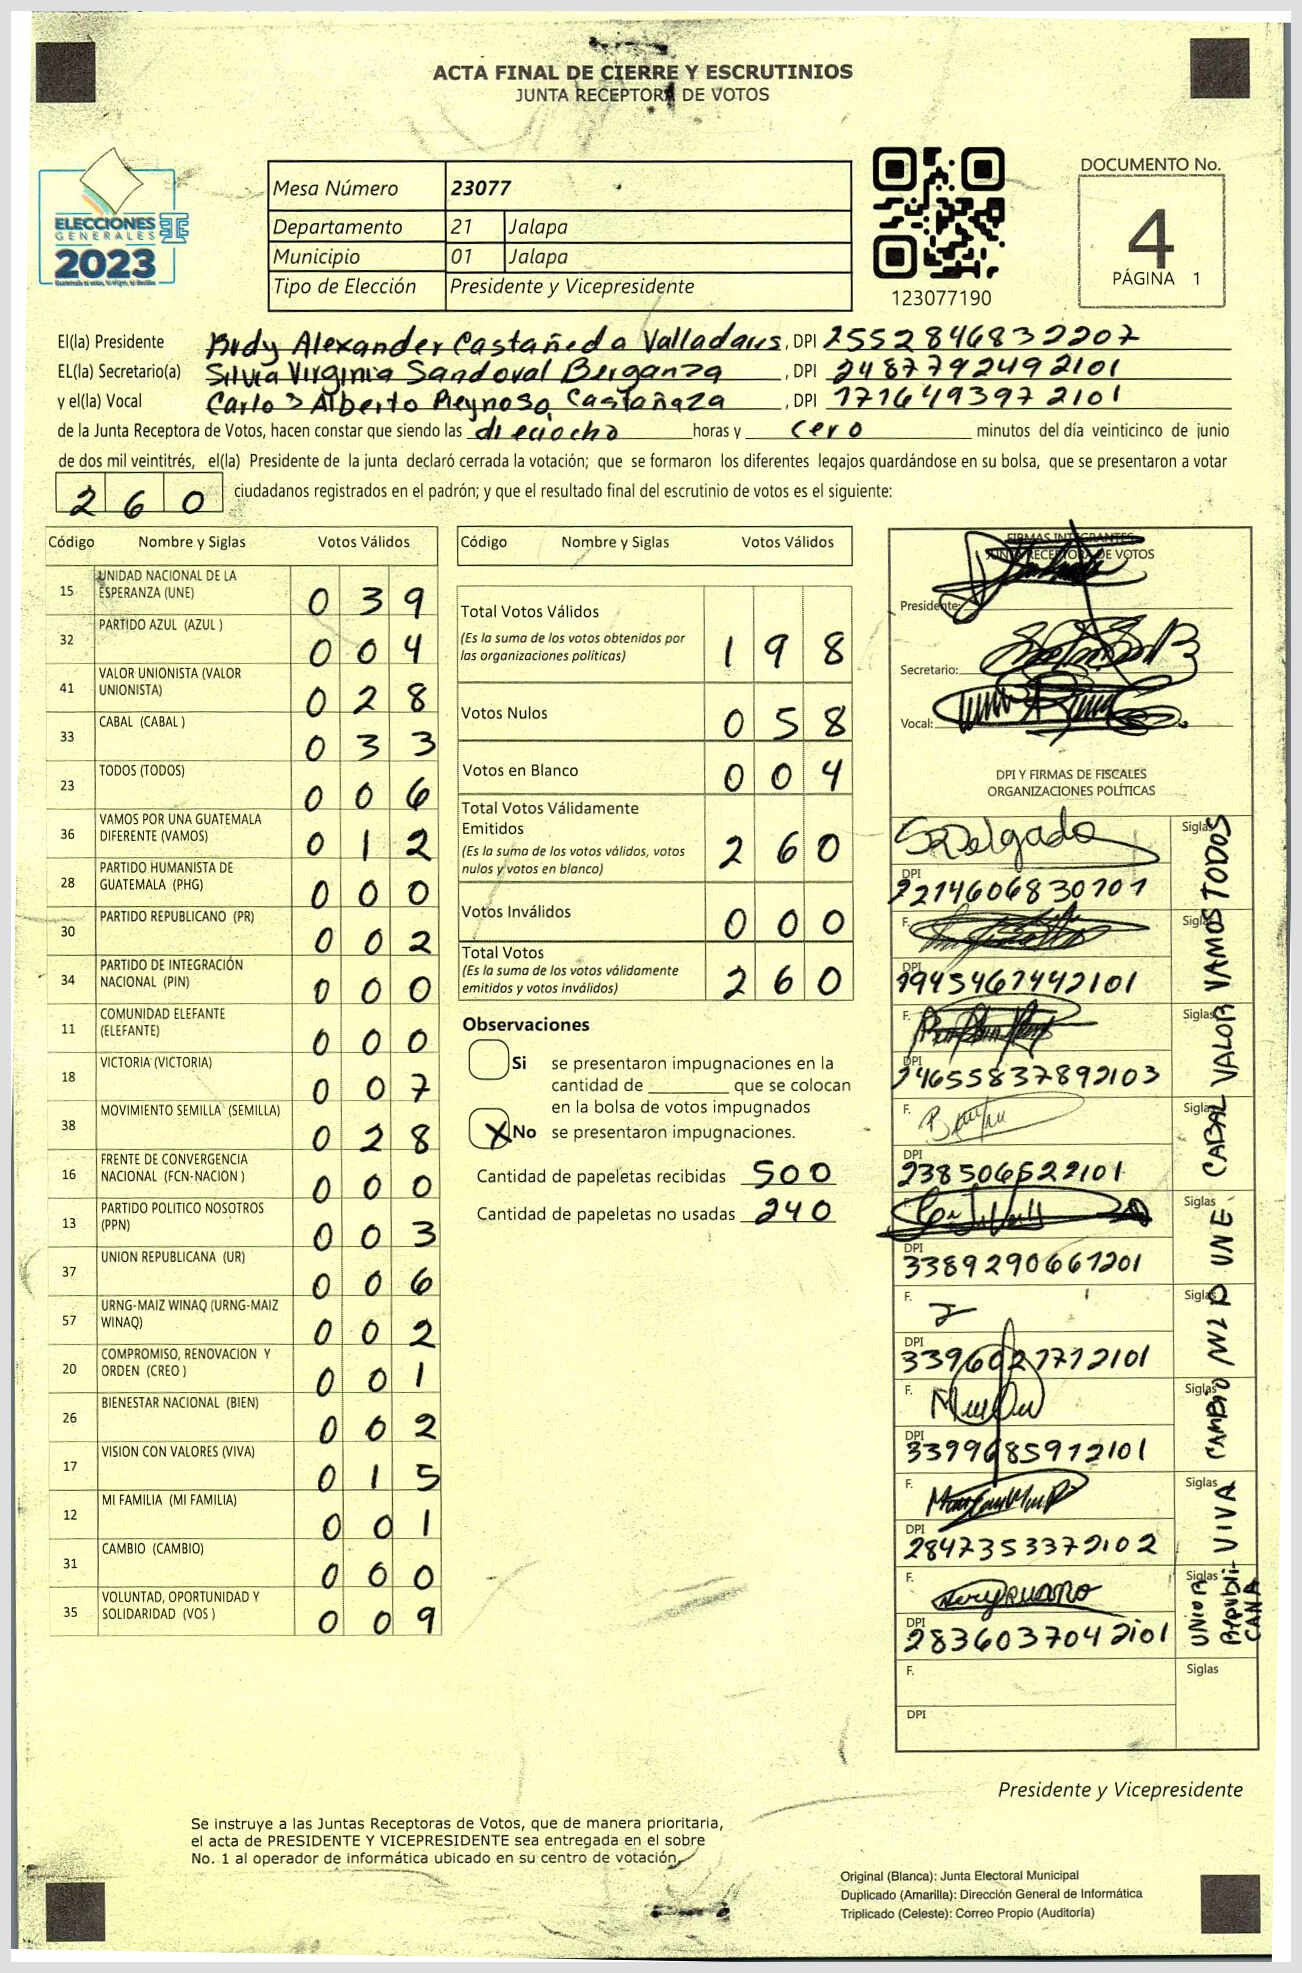 ACTA FINAL DE CIERRE Y ESCRUTINIOS
JUNTA RECEPTORA DE VOTOS
ELECCIONES
GENERALES
2023
Mesa Número 23077
Departamento 21 Jalapa
Municipio 01 Jalapa
Tipo de Elección Presidente y Vicepresidente
123077190
DOCUMENTO No.
4
PÁGINA 1
El(la) Presidente Rudy Alexander Castañeda Valladares, DPI 2552846832207
EL(la) Secretario(a) Silvia Virginia Sandoval Berganza, DPI 2487792492101
y el(la) Vocal Carlos Alberto Reynoso Castañaza, DPI 1716493972101
de la Junta Receptora de Votos, hacen constar que siendo las dieciocho horas y cero minutos del día veinticinco de junio
de dos mil veintitrés, el(la) Presidente de la junta declaró cerrada la votación; que se formaron los diferentes legajos guardándose en su bolsa, que se presentaron a votar
260 ciudadanos registrados en el padrón; y que el resultado final del escrutinio de votos es el siguiente:
Código Nombre y Siglas Votos Válidos
15 UNIDAD NACIONAL DE LA ESPERANZA (UNE) 039
32 PARTIDO AZUL (AZUL ) 004
41 VALOR UNIONISTA (VALOR UNIONISTA) 028
33 CABAL (CABAL ) 033
23 TODOS (TODOS) 006
36 VAMOS POR UNA GUATEMALA DIFERENTE (VAMOS) 012
28 PARTIDO HUMANISTA DE GUATEMALA (PHG) 000
30 PARTIDO REPUBLICANO (PR) 002
34 PARTIDO DE INTEGRACIÓN NACIONAL (PIN) 000
11 COMUNIDAD ELEFANTE (ELEFANTE) 000
18 VICTORIA (VICTORIA) 007
38 MOVIMIENTO SEMILLA (SEMILLA) 028
16 FRENTE DE CONVERGENCIA NACIONAL (FCN-NACION ) 000
13 PARTIDO POLITICO NOSOTROS (PPN) 003
37 UNION REPUBLICANA (UR) 006
57 URNG-MAIZ WINAQ (URNG-MAIZ WINAQ) 002
20 COMPROMISO, RENOVACION Y ORDEN (CREO ) 001
26 BIENESTAR NACIONAL (BIEN) 002
17 VISION CON VALORES (VIVA) 015
12 MI FAMILIA (MI FAMILIA) 001
31 CAMBIO (CAMBIO) 000
35 VOLUNTAD, OPORTUNIDAD Y SOLIDARIDAD (VOS ) 009
Código Nombre y Siglas Votos Válidos
Total Votos Válidos 198
(Es la suma de los votos obtenidos por
las organizaciones políticas)
Votos Nulos 058
Votos en Blanco 004
Total Votos Válidamente
Emitidos 260
(Es la suma de los votos válidos, votos
nulos y votos en blanco)
Votos Inválidos 000
Total Votos 260
(Es la suma de los votos válidamente
emitidos y votos inválidos)
Observaciones
Si se presentaron impugnaciones en la
cantidad de ________ que se colocan
en la bolsa de votos impugnados
X No se presentaron impugnaciones.
Cantidad de papeletas recibidas 500
Cantidad de papeletas no usadas 240
FIRMAS INTEGRANTES
JUNTA RECEPTORA DE VOTOS
Presidente:
Secretario:
Vocal:
DPI Y FIRMAS DE FISCALES
ORGANIZACIONES POLÍTICAS
Siglas
DPI
F. Siglas
DPI
F. Siglas
DPI
F. Siglas
DPI
F. Siglas
DPI 3389290661201
F. Siglas
DPI
F. Siglas
DPI
F. Siglas
DPI 2847353372102
F. Siglas
DPI 2836037042101
F. Siglas
DPI
TODOS
VAMOS
VALOR
CABAL
UNE
CAMBIO
VIVA
UNION
REPUBLI-
CANA
Presidente y Vicepresidente
Se instruye a las Juntas Receptoras de Votos, que de manera prioritaria,
el acta de PRESIDENTE Y VICEPRESIDENTE sea entregada en el sobre
No. 1 al operador de informática ubicado en su centro de votación.
Original (Blanca): Junta Electoral Municipal
Duplicado (Amarilla): Dirección General de Informática
Triplicado (Celeste): Correo Propio (Auditoría)